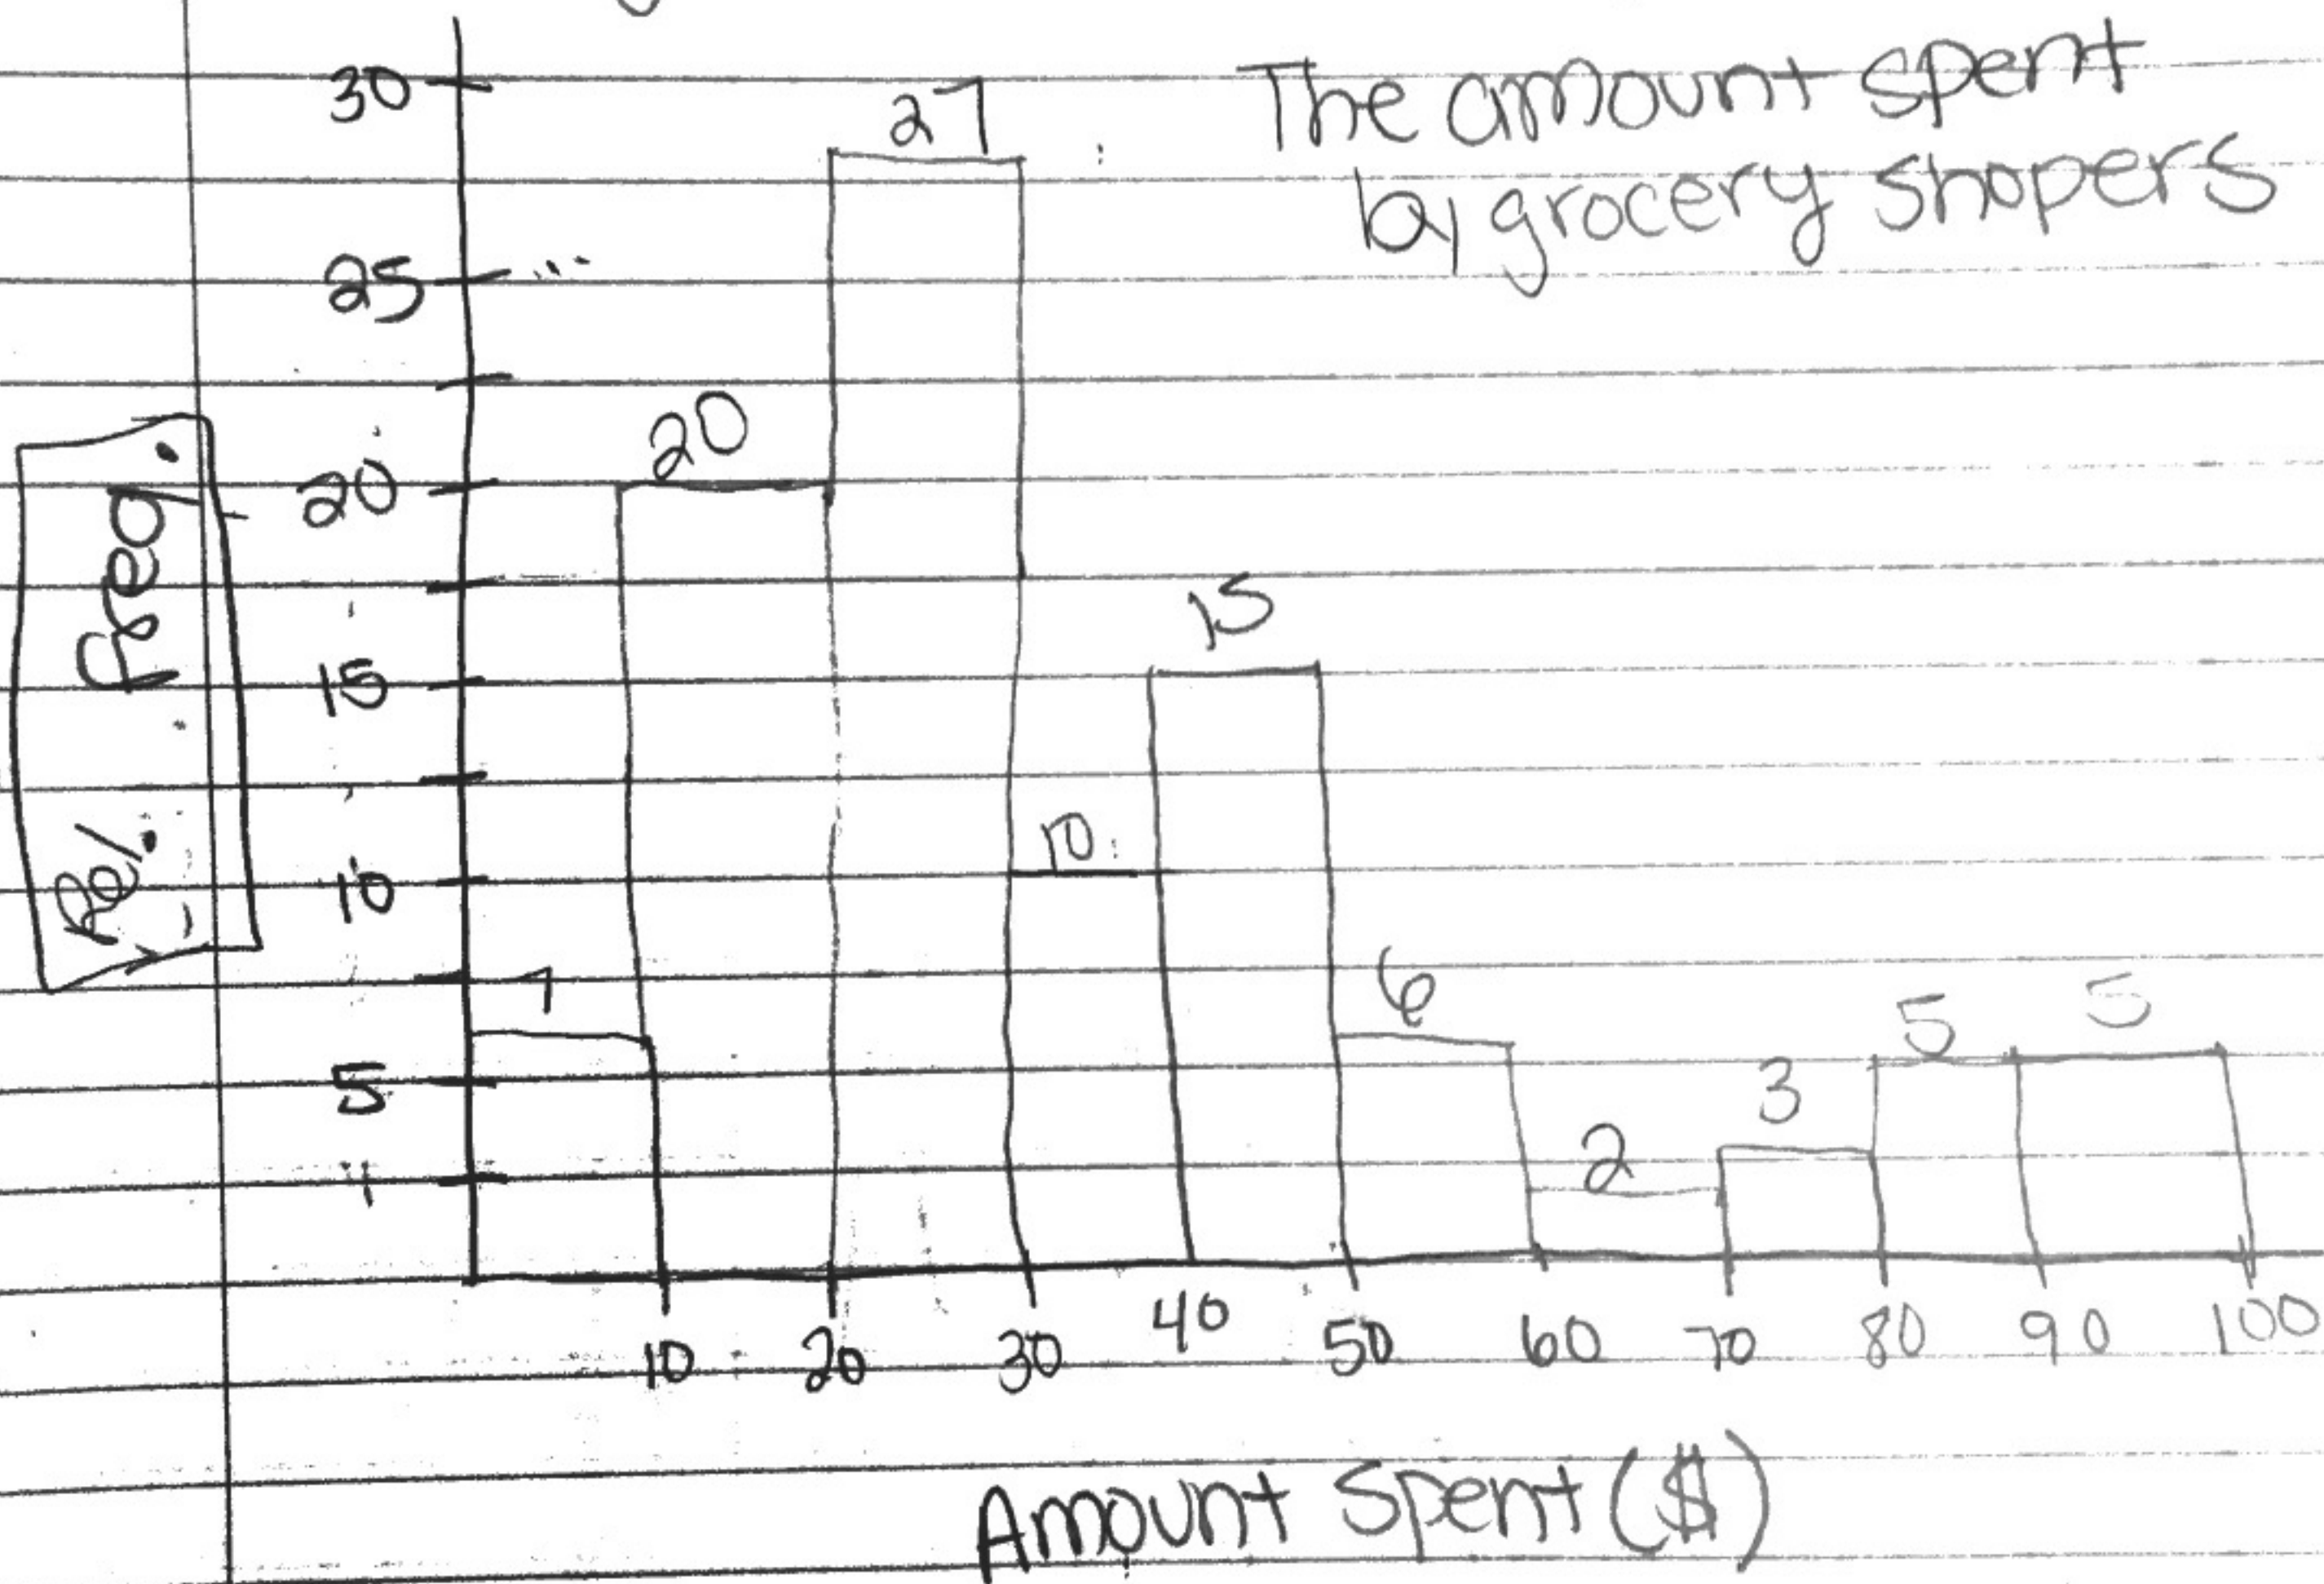 The amount spent
by grocery shopers
Rel. freq.
30
25
20
15
10
5
1
7
20
27
10
15
6
2
3
5
5
10
20
30
40
50
60
70
80
90
100
Amount Spent ($)